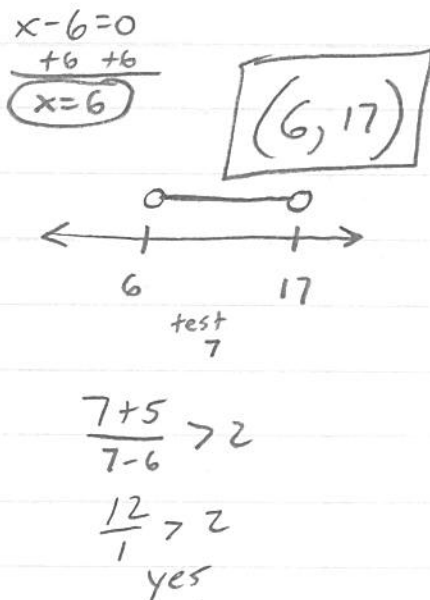 x-6=0
+6 +6
x=6
(6, 17)
6 17
test
7
7+5
7-6
>2
12
1
> 2
yes